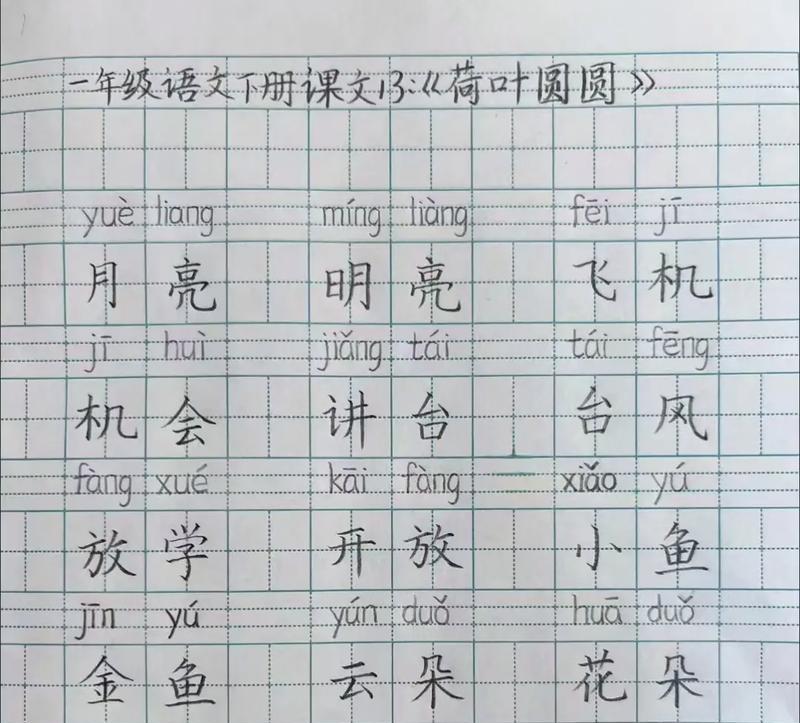 一年级语文下册课文13:《荷叶圆圆》
yuè liang míng liàng fēi jī
月亮 明亮 飞机
jī huì jiǎng tái tái fēng
机会 讲台 台风
fàng xué kāi fàng xiǎo yú
放学 开放 小鱼
jīn yú yún duǒ huā duǒ
金鱼 云朵 花朵